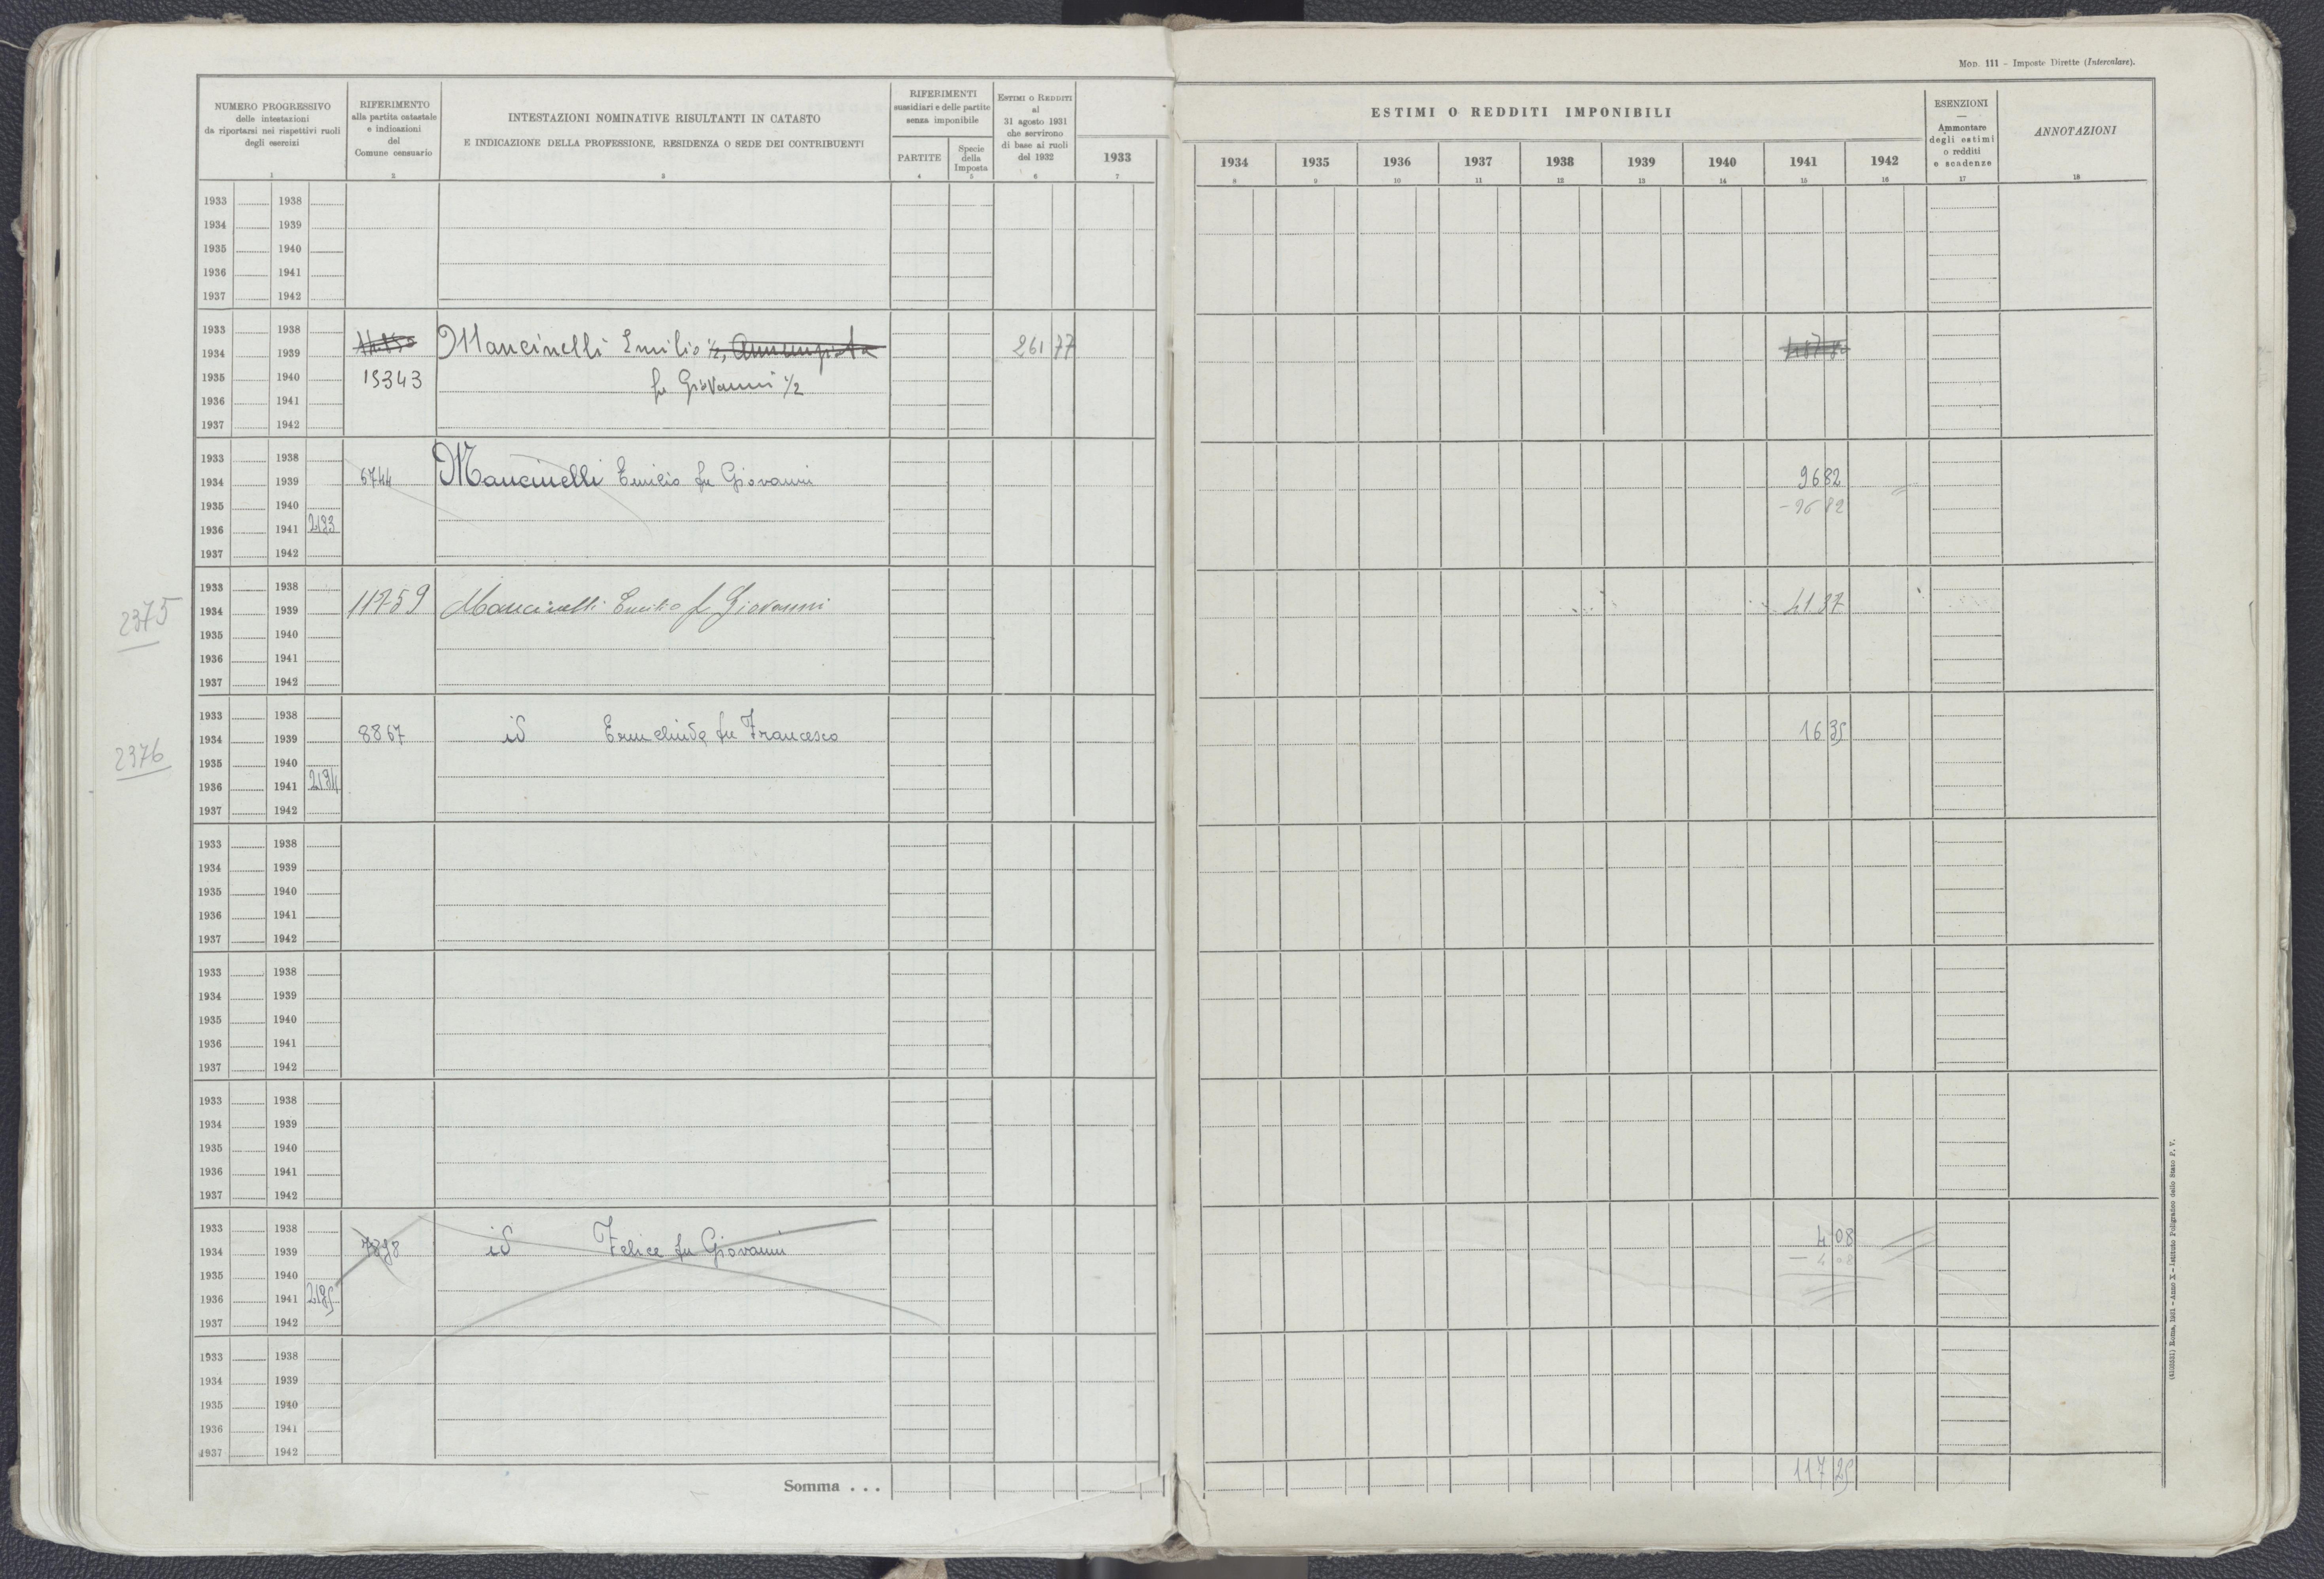 MOD. 111 - Imposte Dirette (Intercalare).
NUMERO PROGRESSIVO
delle intestazioni
da riportarsi nei rispettivi ruoli
degli esercizi
RIFERIMENTO
alla partita catastale
e indicazioni
del
Comune censuario
INTESTAZIONI NOMINATIVE RISULTANTI IN CATASTO
E INDICAZIONE DELLA PROFESSIONE, RESIDENZA O SEDE DEI CONTRIBUENTI
RIFERIMENTI
sussidiari e delle partite
senza imponibile
PARTITE
Specie
della
Imposta
ESTIMI O REDDITI
al
31 agosto 1931
che servirono
di base ai ruoli
del 1932
1933
ESTIMI O REDDITI IMPONIBILI
1934 1935 1936 1937 1938 1939 1940 1941 1942
ESENZIONI
—
Ammontare
degli estimi
o redditi
e scadenze
ANNOTAZIONI
1 2 3 4 5 6 7 8 9 10 11 12 13 14 15 16 17 18
1933 1938
1934 1939
1935 1940
1936 1941
1937 1942
1933 1938
1934 1939 Mancinelli Emilio ½, 261 77
1935 1940 15343 fu Giovanni ½
1936 1941
1937 1942
1933 1938
1934 1939 6744 Mancinelli Emilio fu Giovanni 96 82
1935 1940 - 96 82
1936 1941 2193
1937 1942
1933 1938
2375 1934 1939 11759 Mancinelli Emilio fu Giovanni 41 37
1935 1940
1936 1941
1937 1942
1933 1938
1934 1939 8867 id Ermelinda fu Francesco 16 35
2376 1935 1940
1936 1941 2194
1937 1942
1933 1938
1934 1939
1935 1940
1936 1941
1937 1942
1933 1938
1934 1939
1935 1940
1936 1941
1937 1942
1933 1938
1934 1939
1935 1940
1936 1941
1937 1942
1933 1938
1934 1939 id Felice fu Giovanni 4 08
1935 1940 - 4 08
1936 1941 2195
1937 1942
1933 1938
1934 1939
1935 1940
1936 1941
1937 1942
Somma . . . 117 25
(4103531) Roma, 1931 - Anno X - Istituto Poligrafico dello Stato P. V.